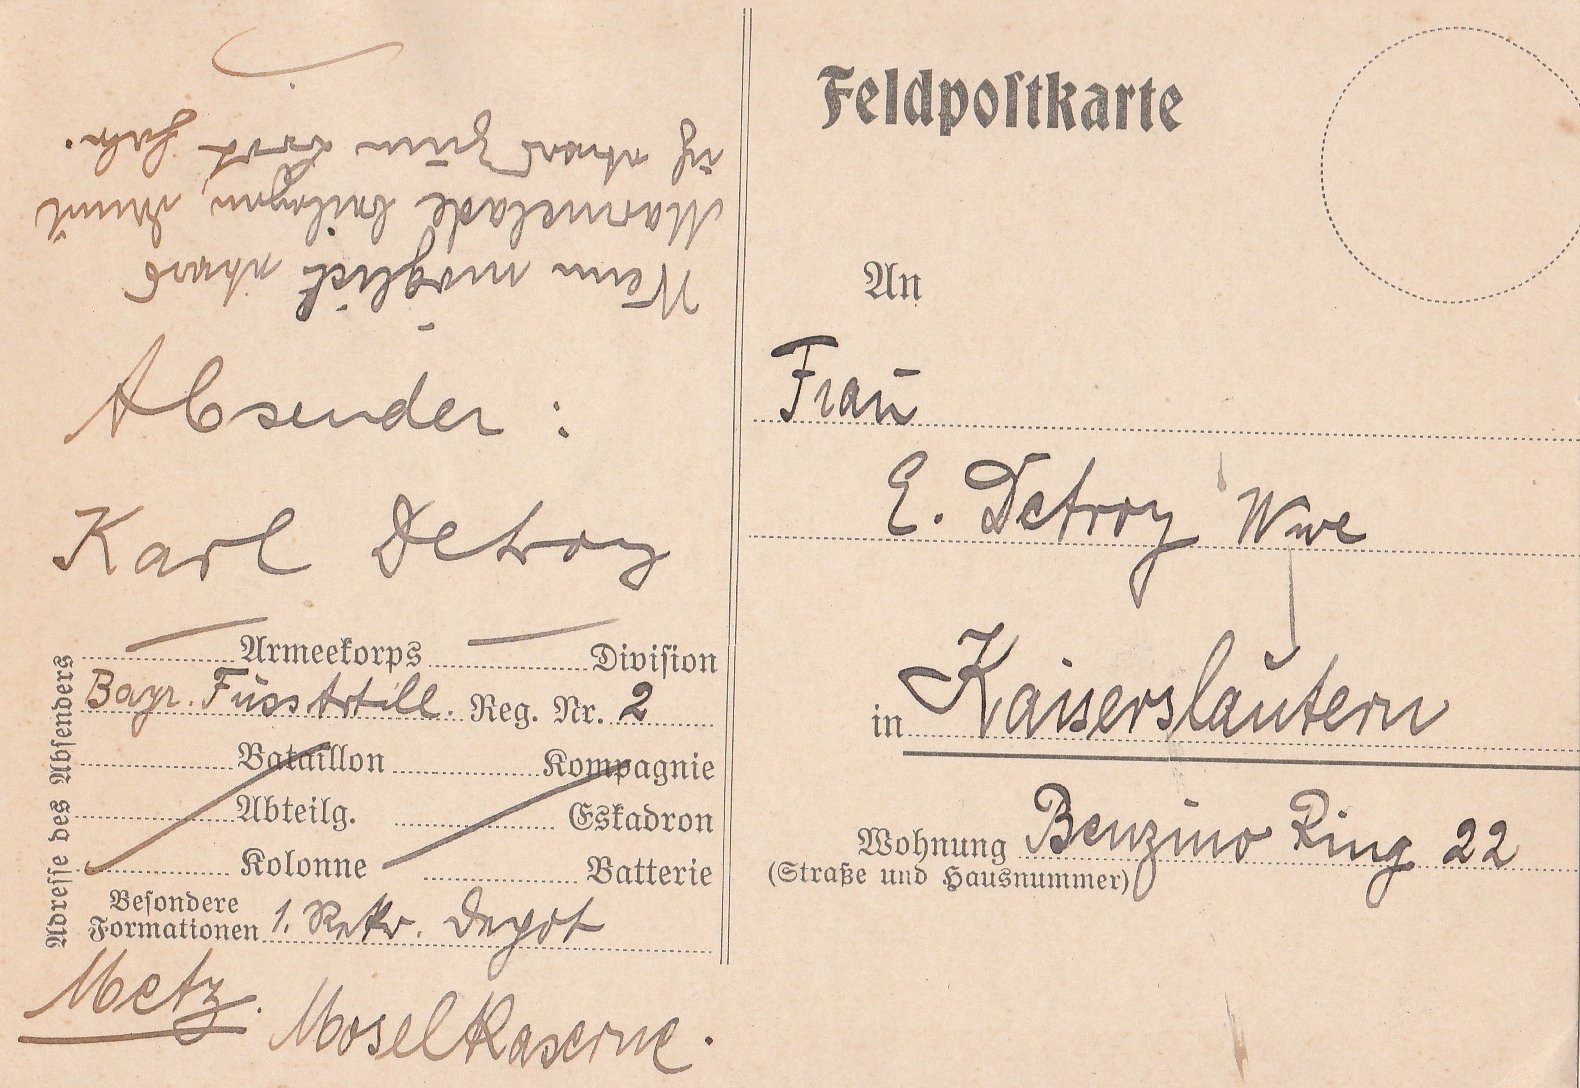 Wenn möglich etwas
Marmelade beilegen, damit
ich etwas zum Brot habe.
Absender :
Karl Detroy
Adresse des Absenders
Armeekorps Division
Bayr. Fuss Artill. Reg. Nr. 2
Bataillon Kompagnie
Abteilg. Eskadron
Kolonne Batterie
Besondere
Formationen 1. Rekr. Depot
Metz. Moselkaserne.
Feldpostkarte
An
Frau
E. Detroy Wwe
in Kaiserslautern
Wohnung Benzino Ring 22
(Straße und Hausnummer)